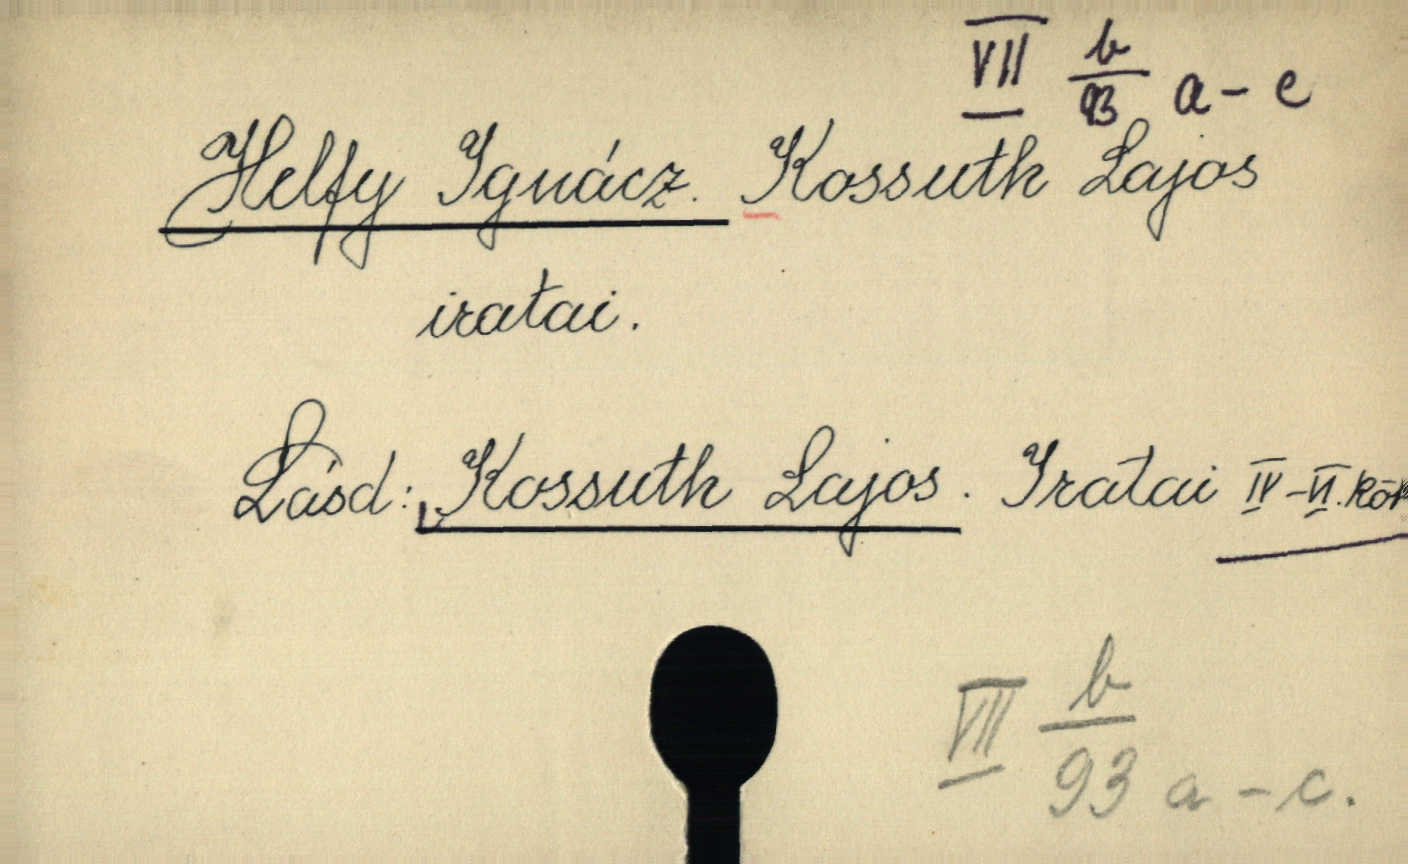 VII b/93 a-c
Helfy Ignácz. Kossuth Lajos
iratai.
Lásd: Kossuth Lajos. Iratai IV-VI. köt
VII b/93 a-c.